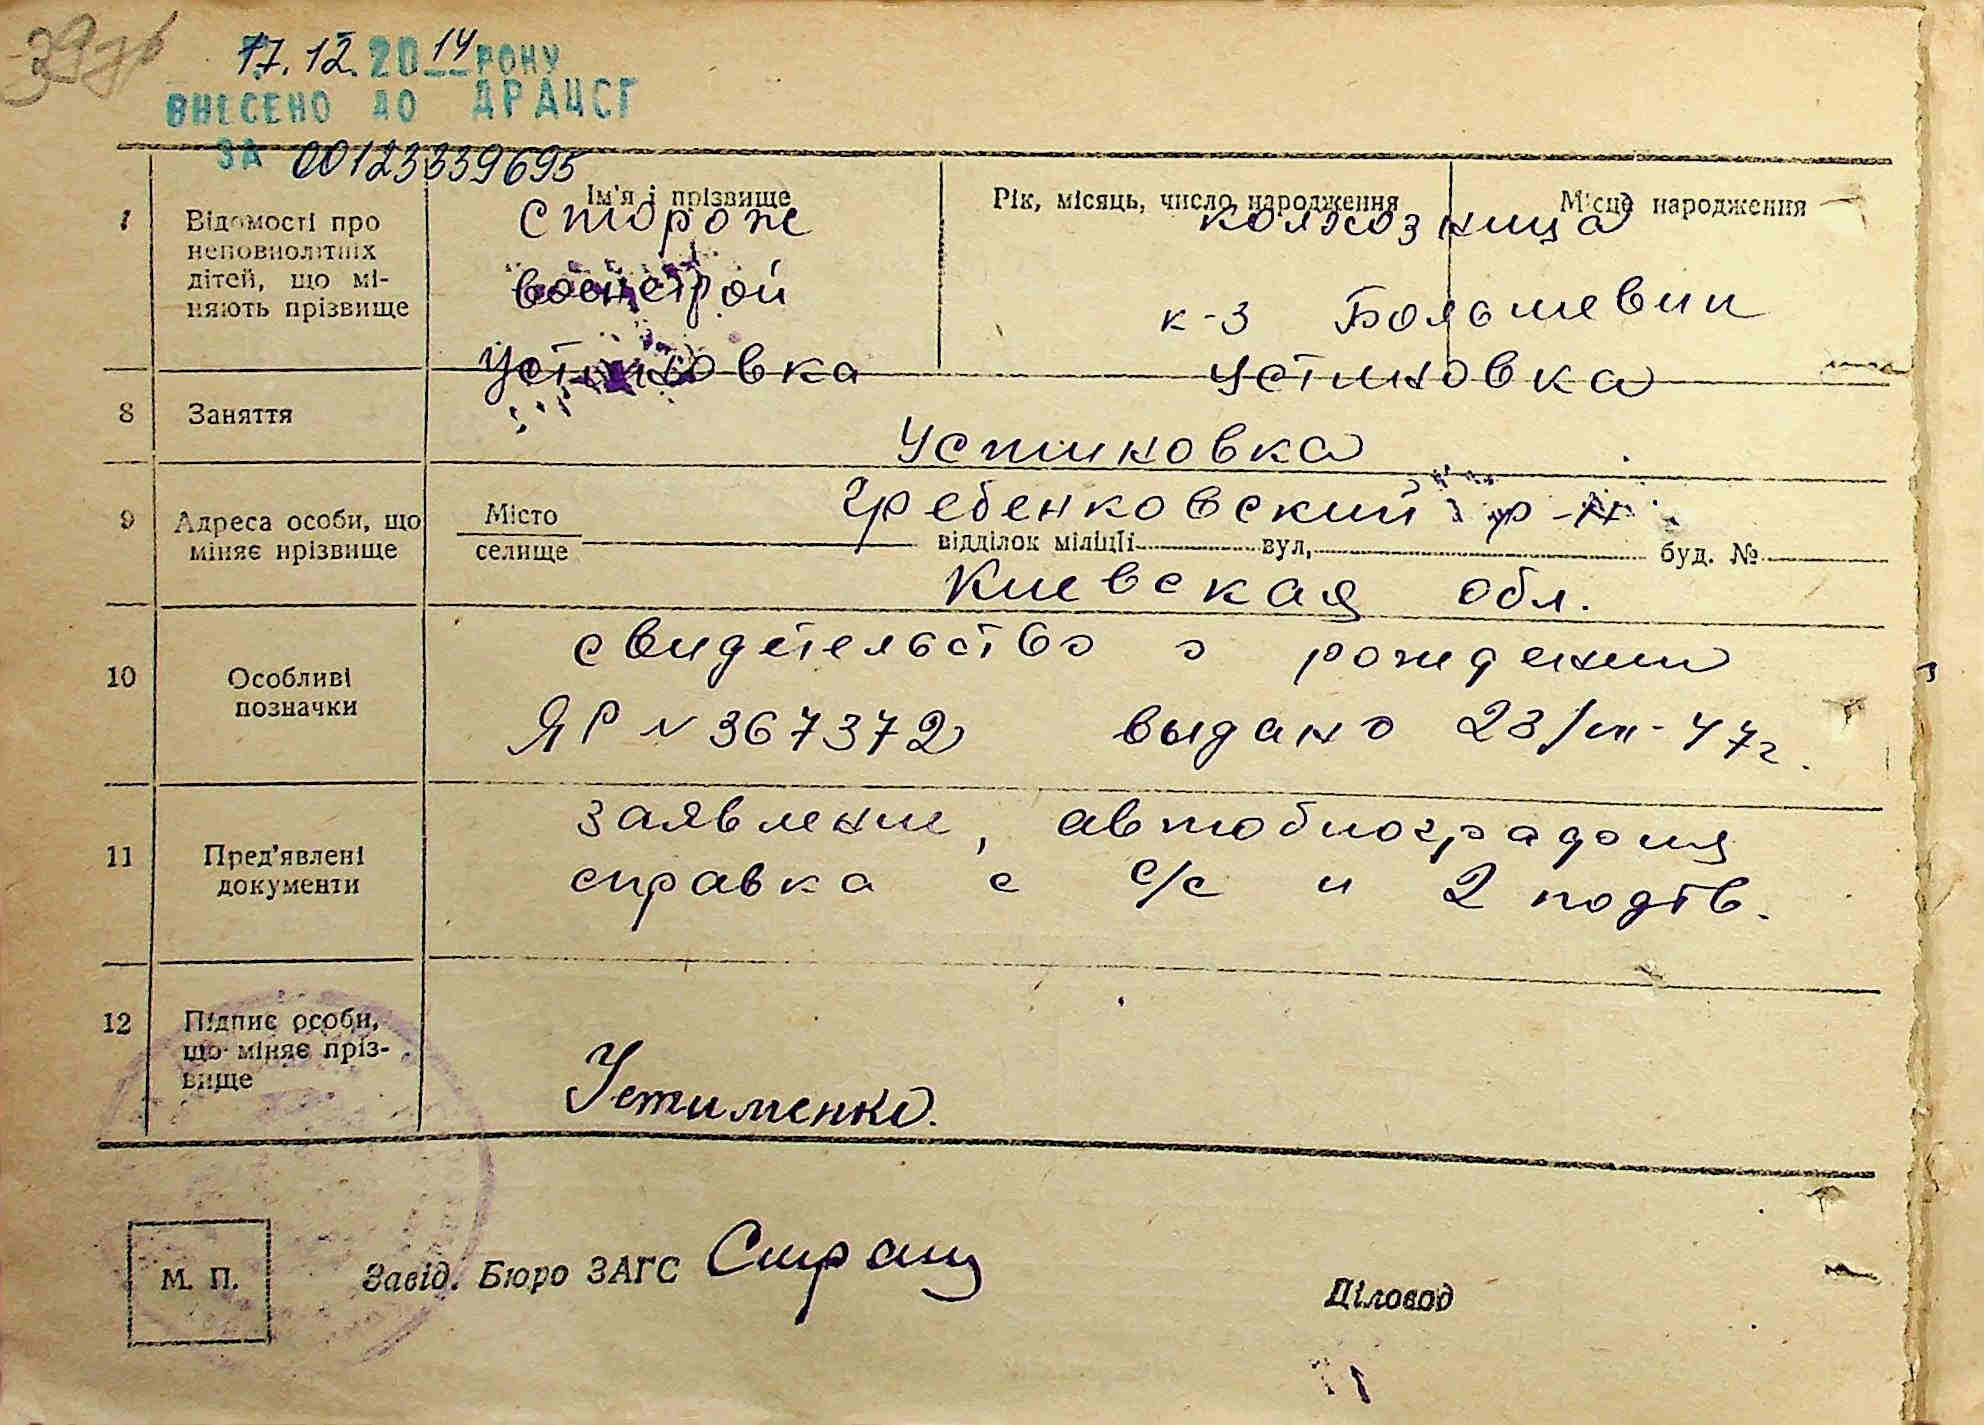 17.12.2014 РОКУ
ВНЕСЕНО ДО ДРАЦСГ
ЗА 00123339695
Ім'я і прізвище
Рік, місяць, число народження
Місце народження
7
Відомості про
неповнолітніх
дітей, що мі-
няють прізвище
Сторож
военстрой
Устиновка
колхозница
к-з Большевик
Устиновка
8
Заняття
Устиновка
9
Адреса особи, що
міняє прізвище
Місто
селище
Гребенковский р-н
відділок міліції вул, буд. №
Киевская обл.
10
Особливі
позначки
свидетельство о рождении
ЯР № 367372 выдано 23/VIII-47г.
11
Пред'явлені
документи
заявление, автобиография
справка с с/с и 2 подтв.
12
Підпис особи,
що міняє пріз-
вище
Устименко.
М. П.
Завід. Бюро ЗАГС
Діловод